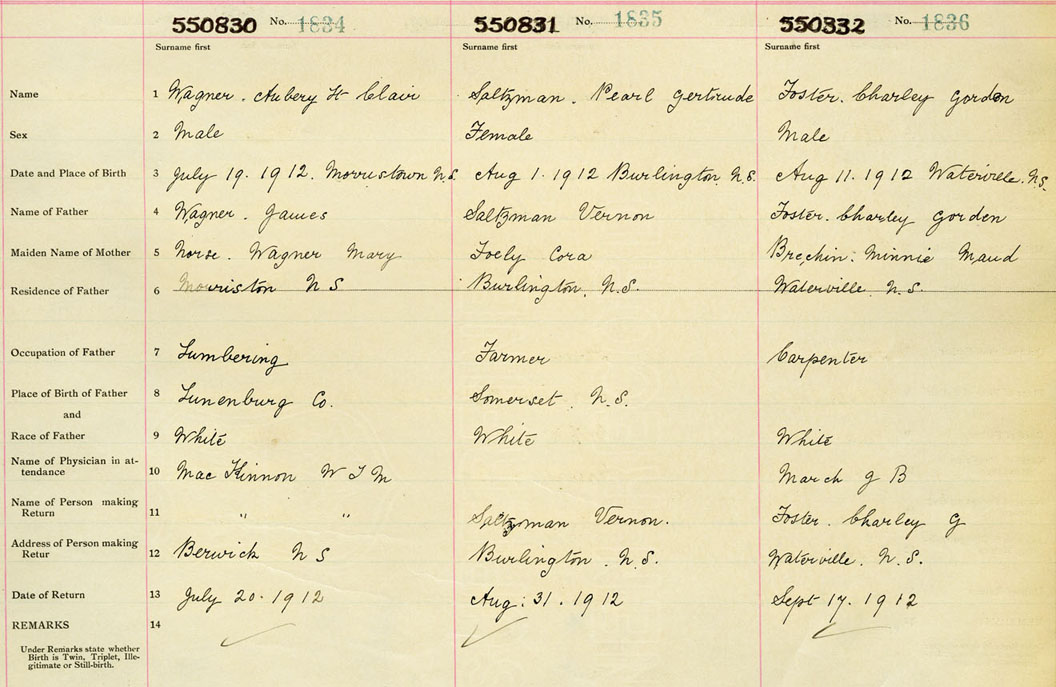 550830 No. 1834 550831 No. 1835 550332 No. 1836
Surname first Surname first Surname first
Name 1 Wagner. Aubery St Clair Saltzman. Pearl Gertrude Foster. Charley Gordon
Sex 2 Male Female Male
Date and Place of Birth 3 July 19. 1912. Morristown N.S. Aug 1. 1912 Burlington N.S. Aug 11. 1912 Waterville. N.S.
Name of Father 4 Wagner. James Saltzman Vernon Foster. Charley Gorden
Maiden Name of Mother 5 Wagner Mary Cora Brechin. Minnie Maud
Residence of Father 6 Morriston N S Burlington. N.S. Waterville N.S.
Occupation of Father 7 Lumbering Farmer Carpenter
Place of Birth of Father 8 Lunenburg Co. Somerset. N.S.
and
Race of Father 9 White White White
Name of Physician in at-
tendance 10 Mac Kinnon W J M March G B
Name of Person making
Return 11 " " Saltzman Vernon. Foster. Charley G
Address of Person making
Retur 12 Berwick N S Burlington. N.S. Waterville. N.S.
Date of Return 13 July 20. 1912 Aug: 31. 1912 Sept 17. 1912
REMARKS 14
Under Remarks state whether
Birth is Twin, Triplet, Ille-
gitimate or Still-birth.